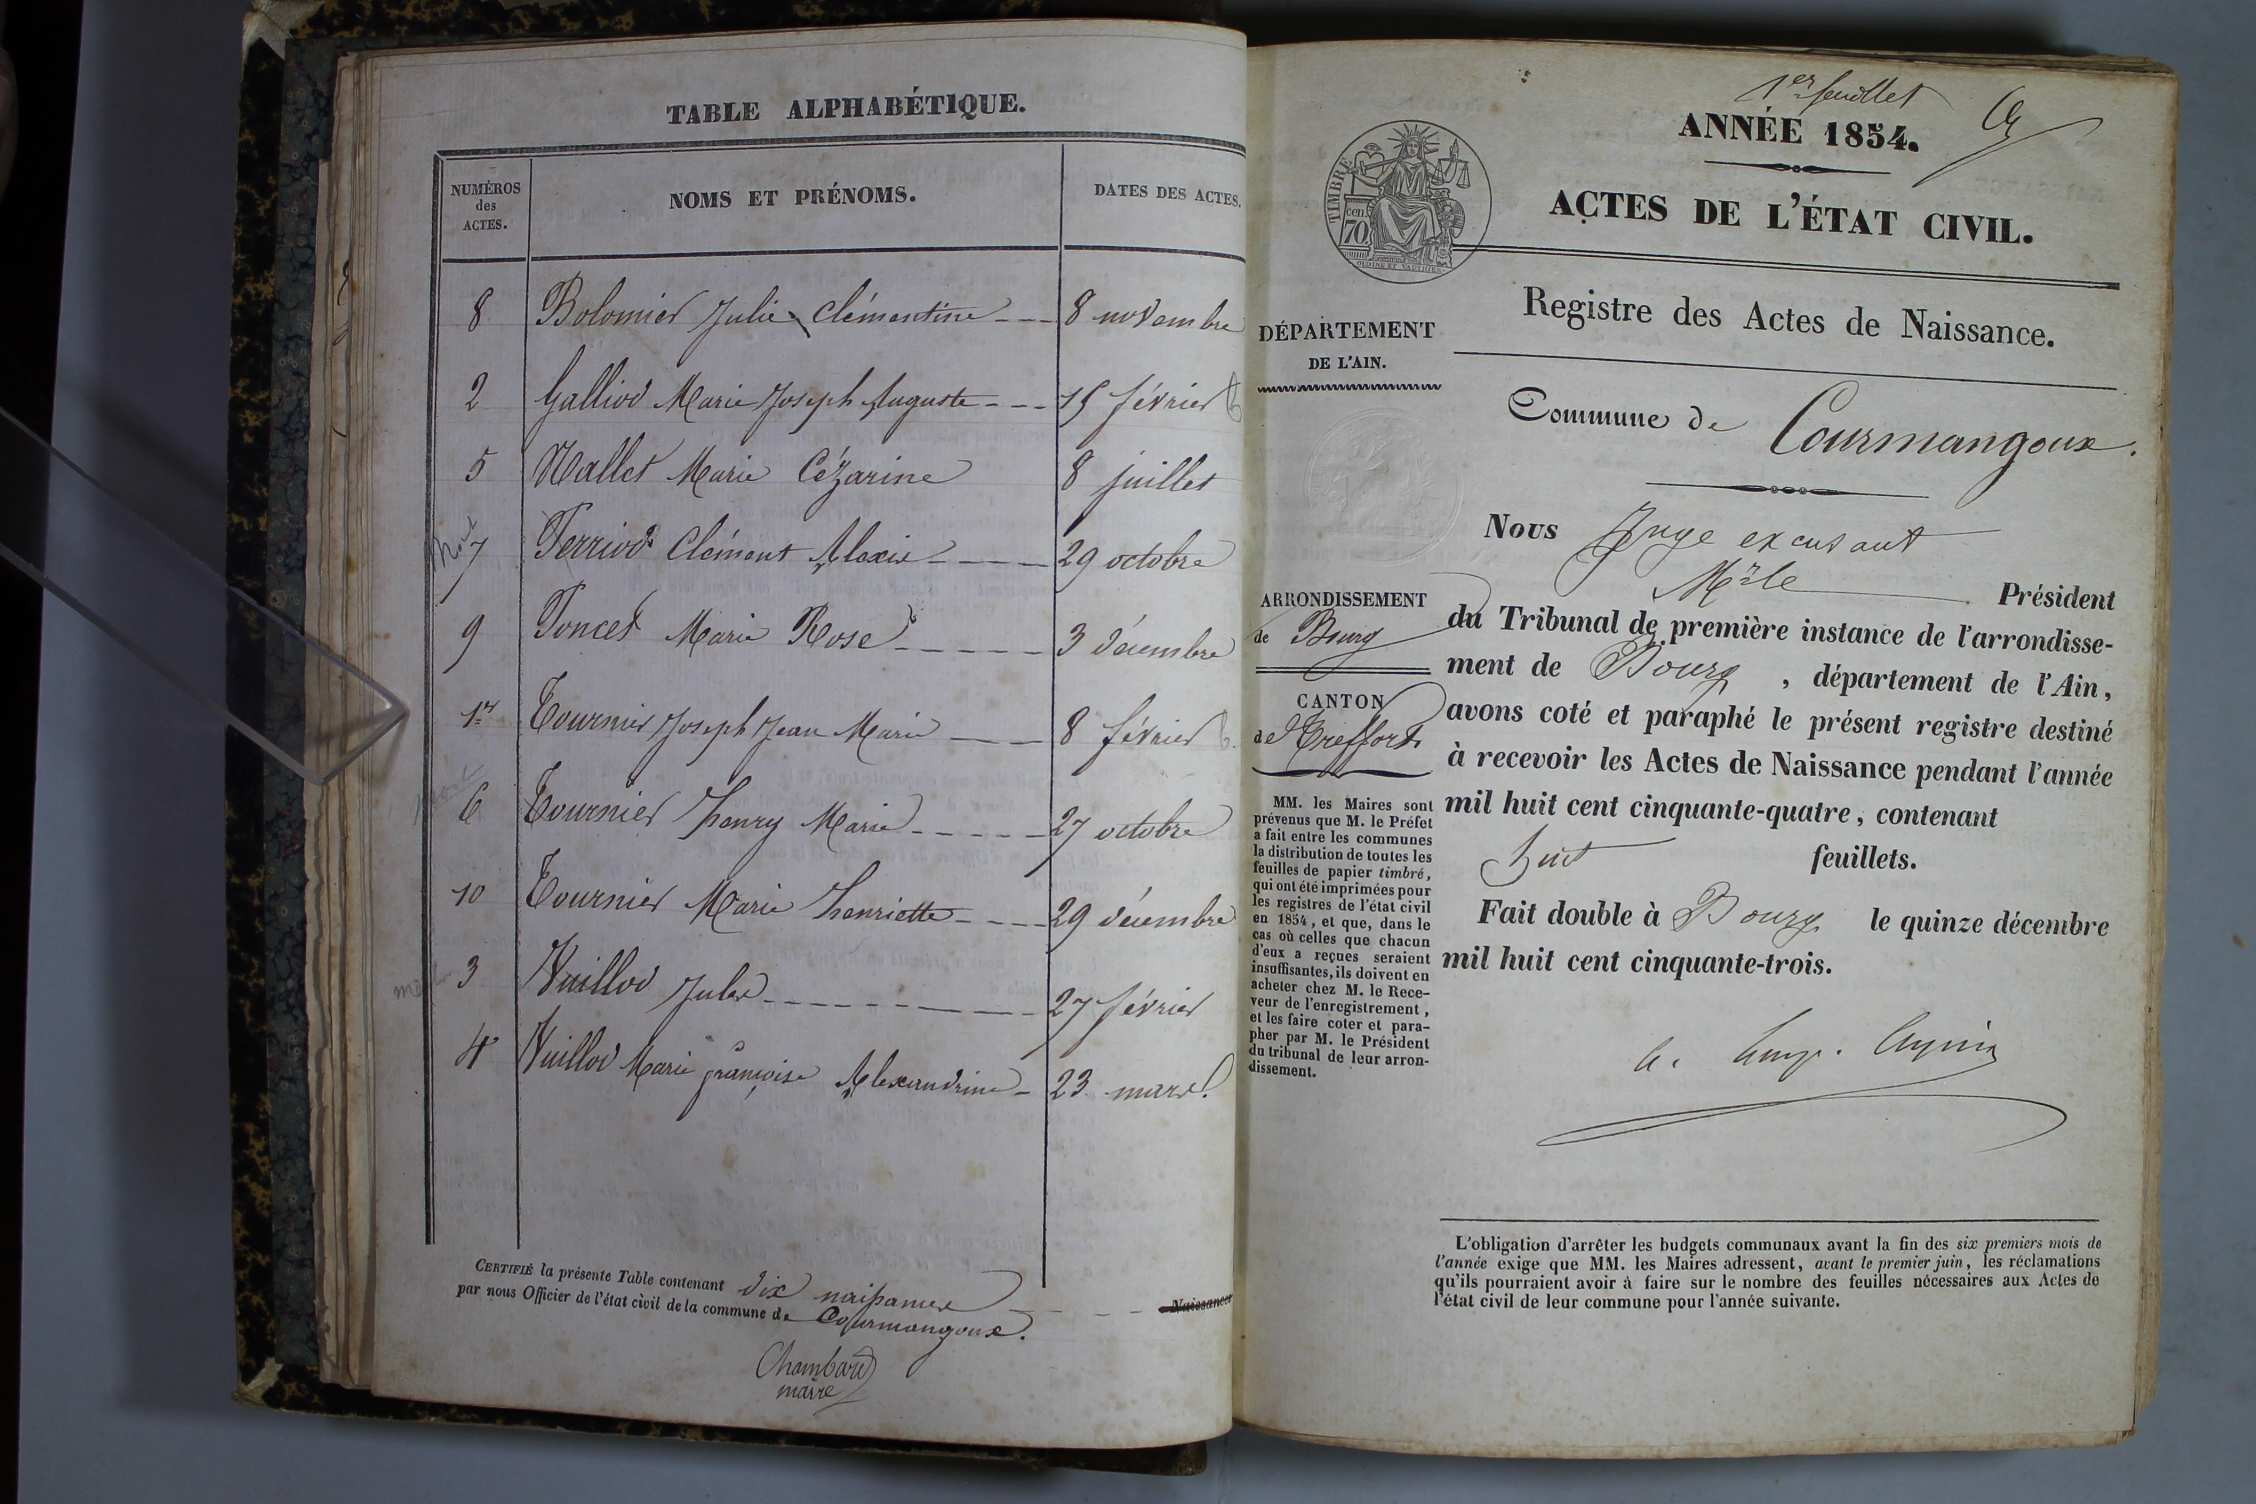 TABLE ALPHABÉTIQUE.
NUMÉROS
des
ACTES.
NOMS ET PRÉNOMS.
DATES DES ACTES.
8 Bolomier Julie Clémentine 8 novembre
2 Galliod Marie Joseph Auguste 15 février
5 Nallet Marie Cézarine 8 juillet
7 Perriod Clément Alexis 29 octobre
9 Poncet Marie Rose 3 décembre
1er Tournier Joseph Jean Marie 8 février
6 Tournier henry Marie 27 octobre
10 Tournier Marie henriette 29 décembre
3 Vuillod Jules 27 février
4 Vuillod Marie françoise Alexandrine 23 mars.
CERTIFIÉ la présente Table contenant dix naissances Naissances
par nous Officier de l'état civil de la commune de Courmangoux.
Chambard
maire
1er feuillet
ANNÉE 1854.
ACTES DE L'ÉTAT CIVIL.
TIMBRE
70 cen.
Registre des Actes de Naissance.
DÉPARTEMENT
DE L'AIN.
Commune de Courmangoux.
ARRONDISSEMENT
de Bourg
CANTON
de Treffort
MM. les Maires sont
prévenus que M. le Préfet
a fait entre les communes
la distribution de toutes les
feuilles de papier timbré,
qui ont été imprimées pour
les registres de l'état civil
en 1854, et que, dans le
cas où celles que chacun
d'eux a reçues seraient
insuffisantes, ils doivent en
acheter chez M. le Rece-
veur de l'enregistrement,
et les faire coter et para-
pher par M. le Président
du tribunal de leur arron-
dissement.
Nous Juge excusant
Mr le Président
du Tribunal de première instance de l'arrondisse-
ment de Bourg, département de l'Ain,
avons coté et paraphé le présent registre destiné
à recevoir les Actes de Naissance pendant l'année
mil huit cent cinquante-quatre, contenant
huit feuillets.
Fait double à Bourg le quinze décembre
mil huit cent cinquante-trois.
L'obligation d'arrêter les budgets communaux avant la fin des six premiers mois de
l'année exige que MM. les Maires adressent, avant le premier juin, les réclamations
qu'ils pourraient avoir à faire sur le nombre des feuilles nécessaires aux Actes de
l'état civil de leur commune pour l'année suivante.